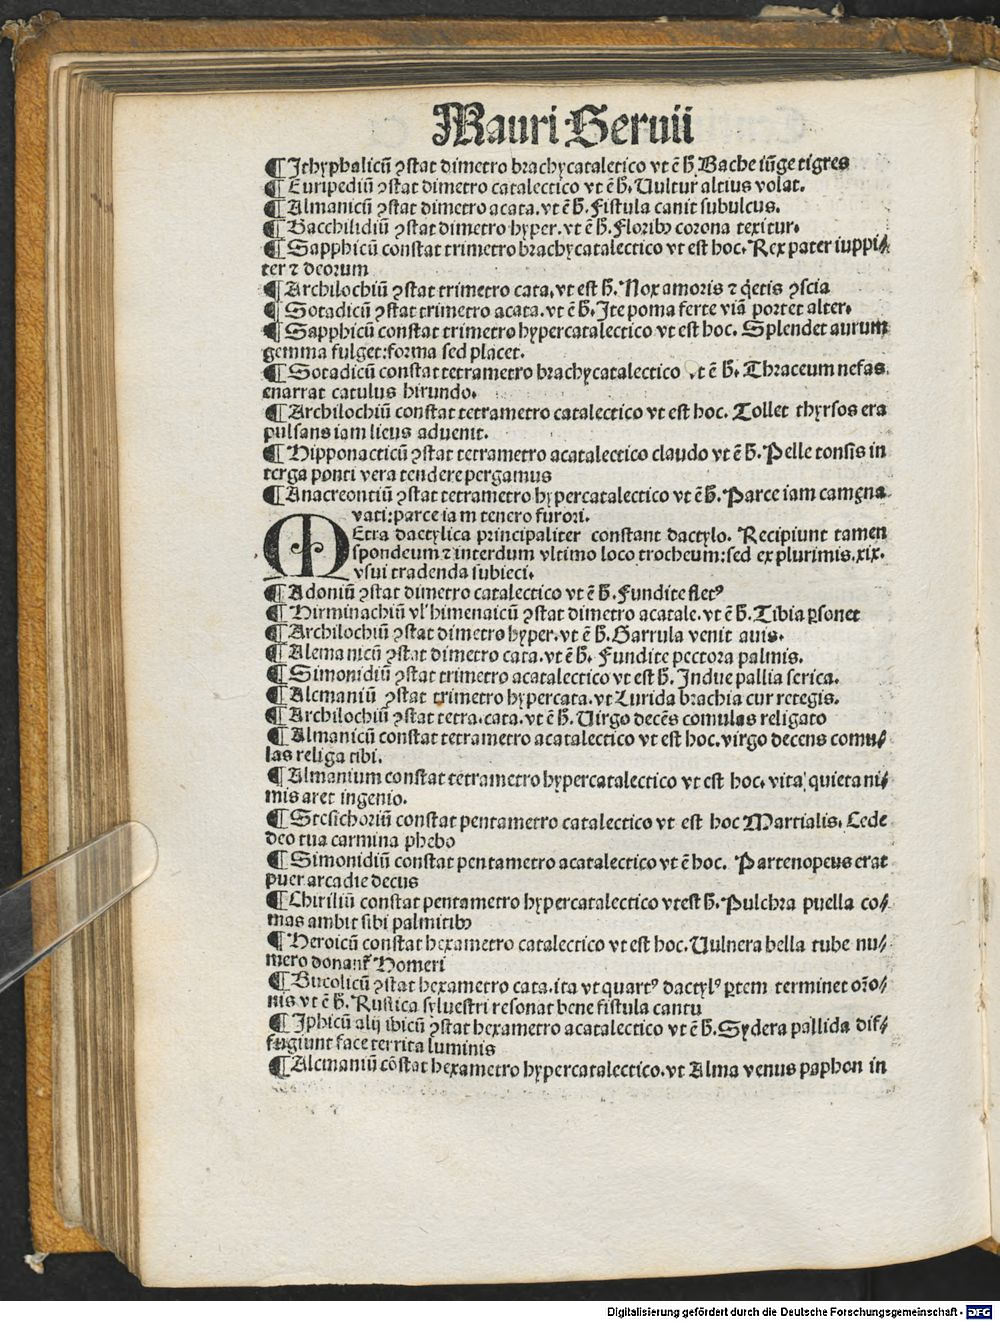 Mauri Seruii
¶Ithyphalicū ꝯstat dimetro brachycataletico vt ē ɧ Bache iūge tigres
¶Euripediū ꝯstat dimetro catalectico vt ē ɧ. Uultur altius volat.
¶Almanicū ꝯstat dimetro acata. vt ē ɧ. Fistula canit subulcus.
¶Bacchilidiū ꝯstat dimetro hyper. vt ē ɧ. Floribꝫ corona texitur.
¶Sapphicū constat trimetro brachycatalectico vt est hoc. Rex pater iuppi/
ter ⁊ deorum
¶Archilochiū ꝯstat trimetro cata. vt est ɧ. Nox amoris ⁊ q̄etis ꝯscia
¶Sotadicū ꝯstat trimetro acata. vt ē ɧ. Ite poma ferte viā portet alter.
¶Sapphicū constat trimetro hypercatalectico vt est hoc. Splendet aurum
gemma fulget:forma sed placet.
¶Sotadicū constat tetrametro brachycatalectico vt ē ɧ. Thraceum nefas
enarrat catulus hirundo.
¶Archilochiū constat tetrametro catalectico vt est hoc. Tollet thyrsos era
pulsans iam lieus aduenit.
¶Hipponacticū ꝯstat tetrametro acatalectico claudo vt ē ɧ. Pelle tonsis in
terga ponti vera tendere pergamus
¶Anacreontiū ꝯstat tetrametro hypercatalectico vt ē ɧ. Parce iam camęna
vati:parce iam tenero furori.
MEtra dactylica principaliter constant dactylo. Recipiunt tamen
spondeum ⁊ interdum vltimo loco trocheum:sed ex plurimis.xix.
vsui tradenda subieci.
¶Adoniū ꝯstat dimetro catalectico vt ē ɧ. Fundite fletꝰ
¶Hirminachiū vl' himenaicū ꝯstat dimetro acatale. vt ē ɧ. Tibia ꝑsonet
¶Archilochiū ꝯstat dimetro hyper. vt ē ɧ. Garrula venit auis.
¶Alemanicū ꝯstat dimetro cata. vt ē ɧ. Fundite pectora palmis.
¶Simonidiū ꝯstat trimetro acatalectico vt est ɧ. Indue pallia serica.
¶Alcmaniū ꝯstat trimetro hypercata. vt Lurida brachia cur retegis.
¶Archilochiū ꝯstat tetra. cata. vt ē ɧ. Uirgo decēs comulas religato
¶Almanicū constat tetrametro acatalectico vt est hoc. virgo decens comu/
las religa tibi.
¶Almanium constat tetrametro hypercatalectico vt est hoc. vita quieta ni/
mis aret ingenio.
¶Stesichoriū constat pentametro catalectico vt est hoc Martialis. Cede
deo tua carmina phebo
¶Simonidiū constat pentametro acatalectico vt ē hoc. Partenopeus erat
puer arcadie decus
¶Chiriliū constat pentametro hypercatalectico vt est ɧ. Pulchra puella co/
mas ambit sibi palmitibꝫ
¶Heroicū constat hexametro catalectico vt est hoc. Uulnera bella tube nu/
mero donant᷑ Homeri
¶Bucolicū ꝯstat hexametro cata. ita vt quartꝰ dactylꝰ ꝑtem terminet or̄o/
nis vt ē ɧ. Rustica syluestri resonat bene fistula cantu
¶Iphicū alij ibicū ꝯstat hexametro acatalectico vt ē ɧ. Sydera pallida dif/
fugiunt face territa luminis
¶Alcmaniū cōstat hexametro hypercatalectico. vt Alma venus paphon in
Digitalisierung gefördert durch die Deutsche Forschungsgemeinschaft - DFG